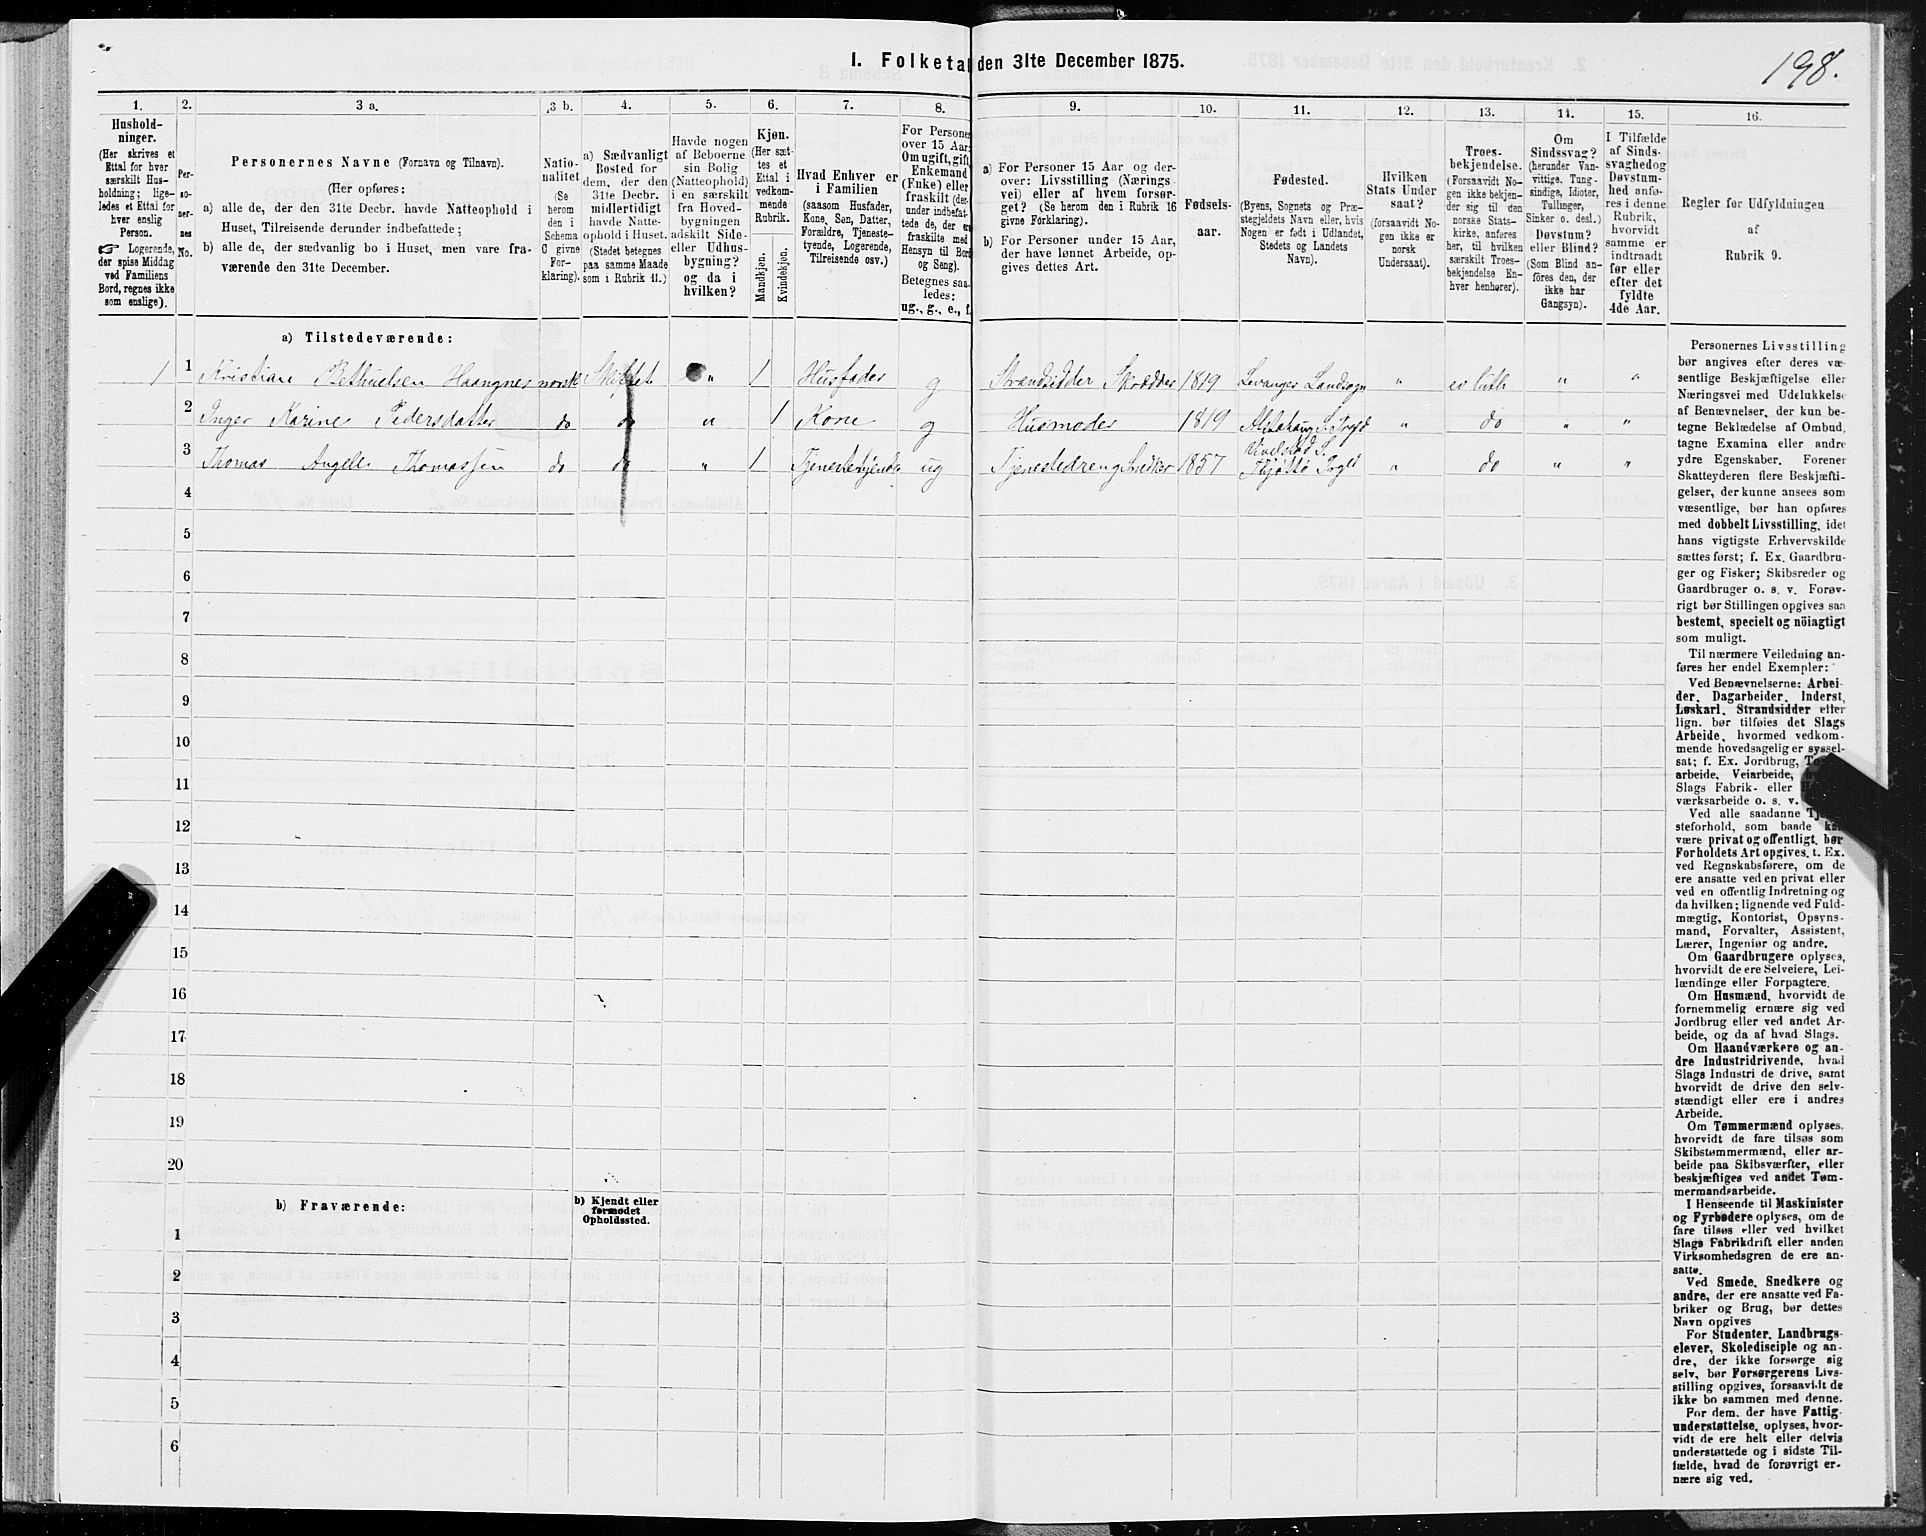 198.
1. Folketa den 31te December 1875.
1. 2. 3 a. 3 b. 4. 5. 6. 7. 8. 9. 10. 11. 12. 13. 14. 15. 16.
Hushold-
ninger.
(Her skrives et
Ettal for hver
særskilt Hus-
holdning; lige-
ledes et Ettal for
hver enslig
Person.
☞ Logerende,
der spise Middag
ved Familiens
Bord, regnes ikke
som enslige).
Per-
so-
ner-
nes
No.
Personernes Navne (Fornavn og Tilnavn).
(Her opføres:
a) alle de, der den 31te Decbr. havde Natteophold i
Huset, Tilreisende derunder indbefattede;
b) alle de, der sædvanlig bo i Huset, men vare fra-
værende den 31te December.
Natio-
nalitet
(Se
herom
den i
Schema
C givne
For-
klaring).
a) Sædvanligt
Bosted for
dem, der den
31te Decbr.
midlertidigt
havde Natte-
ophold i Huset.
(Stedet betegnes
paa samme Maade
som i Rubrik 11.)
Havde nogen
af Beboerne
sin Bolig
(Natteophold)
i en særskilt
fra Hoved-
bygningen
adskilt Side-
eller Udhus-
bygning?
og da i
hvilken?
Kjøn.
(Her sæt-
tes et
Ettal i
vedkom-
mende
Rubrik.
Mandkjøn.
Kvindekjøn.
Hvad Enhver er
i Familien
(saasom Husfader,
Kone, Søn, Datter,
Forældre, Tjeneste-
tyende, Logerende,
Tilreisende osv.)
For Persone
over 15 Aar:
Om ugift, gift,
Enkemand
(Enke) eller
fraskilt (der-
under indbefat-
tede de, der er
fraskilte med
Hensyn til Bord
og Seng).
Betegnes saa-
ledes:
ug., g., e., f.
a) For Personer 15 Aar og der-
over: Livsstilling (Nærings
vei) eller af hvem forsør-
get? (Se herom den i Rubrik 16
givne Forklaring).
b) For Personer under 15 Aar,
der have lønnet Arbeide, op-
gives dettes Art.
Fødsels-
aar.
Fødested.
(Byens, Sognets og Præ-
stegjeldets Navn eller, hvis
Nogen er født i Udlandet,
Stedets og Landets
Navn).
Hvilken
Stats Under
saat?
(forsaavidt No-
gen ikke er
norsk
Undersaat).
Troes-
bekjendelse.
(Forsaavidt No-
gen ikke bekjen-
der sig til den
norske Stats-
kirke, anføres
her, til hvilken
særskilt Troes-
bekjendelse En-
hver henhører).
Om
Sindssvag?
(herunder Van-
vittige, Tung-
sindige, Idioter,
Tullinger,
Sinker o. desl.)
Døvstum?
eller Blind?
(Som Blind an-
føres den, der
ikke har
Gangsyn).
I Tilfælde
af Sinds-
svaghed og
Døvstum-
hed anfø-
res i denne
Rubrik,
hvorvidt
samme er
indtraadt
før eller
efter det
fyldte
4de Aar.
Regler før Udfyldningen
af
Rubrik 9.
a) Tilstedeværende:
1 1 Kristian Bethuelsen Haangnes norsk " 1 Husfader g Strandsidder Skrædder 1819 Levanger Landsogn " ev luth " "
2 Inger Karine Pedersdatter do do " 1 Kone g Husmoder 1819 Alstahaug S. Prgld " do " "
3 Thomas Angell Thomassen do do " 1 Tjenestetyende ug Tjenestedreng Snedker 1857 Vivelstad S. Thjøttø Prgld " do " "
4
5
6
7
8
9
10
11
12
13
14
15
16
17
18
19
20
b) Fraværende:
b) Kjendt eller
formødet
Opholdssted.
1
2
3
4
5
6
Personernes Livsstilling
bør angives efter deres væ-
sentlige Beskjæftigelse eller
Næringsvei med Udelukkelse
af Benævnelser, der kun be-
tegne Beklædelse af Ombud,
tagne Examina eller andre
ydre Egenskaber. Forener
Skatteyderen flere Beskjæfti-
gelser, der kunne ansees som
væsentlige, bør han opføres
med dobbelt Livsstilling, idet
hans vigtigste Erhvervskilde
sættes først; f. Ex. Gaardbru-
ger og Fisker; Skibsreder og
Gaardbruger o. s. v. Forøv-
rigt bør Stillingen opgives saa
bestemt, specielt og nöiagtigt
som muligt.
Til nærmere Veiledning an-
føres her endel Exempler:
Ved Benævnelserne: Arbei-
der, Dagarbeider, Inderst,
Løskarl, Strandsidder eller
lign. bør tilføies det Slags
Arbeide, hvormed vedkom-
mende hovedsagelig er syssel-
sat; f. Ex. Jordbrug,
arbeide, Veiarbeide,
Slags Fabrik- eller
værksarbeide o. s. v.
Ved alle saadanne
steforhold, som baade
være privat og offentligt, bør
Forholdets Art opgives, t. Ex.
ved Regnskabsførere, om de
ere ansatte ved en privat eller
ved en offentlig Indretning og
da hvilken; lignende ved Fuld-
mægtig, Kontorist, Opsyns-
mand, Forvalter, Assistent,
Lærer, Ingeniør og andre.
Om Gaardbrugere oplyses,
hvorvidt de ere Selveiere, Lei-
lændinge eller Forpagtere.
Om Husmænd, hvorvidt de
fornemmelig ernære sig ved
Jordbrug eller ved andet Ar-
beide, og da af hvad Slags.
Om Haandværkere og an-
dre Industridrivende, hvad
Slags Industri de drive, samt
hvorvidt de drive den selv-
stændigt eller ere i andres
Arbeide.
Om Tømmermænd oplyses,
hvorvidt de fare tilsøs som
Skibstømmermænd, eller ar-
beide paa Skibsværfter, eller
beskjæftiges ved andet Tøm-
mermandsarbeide.
I Henseende til Maskinister
og Fyrbødere oplyses, om de
fare tilsøs eller ved hvilket
Slags Fabrikdrift eller anden
Virksomhedsgren de ere an-
satte.
Ved Smede, Snedkere og
andre, der ere ansatte ved Fa-
briker og Brug, bør dettes
Navn opgives
For Studenter, Landbrugs-
elever, Skoledisciple og an-
dre, der ikke forsørge sig
selv, bør Forsørgerens Livs-
stilling opgives, forsaavidt de
ikke bo sammen med denne.
For dem, der have Fattig-
understøttelse, oplyses, hvor-
vidt de ere helt eller delvis
understøttede og i sidste Til-
fælde, hvad de forøvrigt er-
nære sig ved.